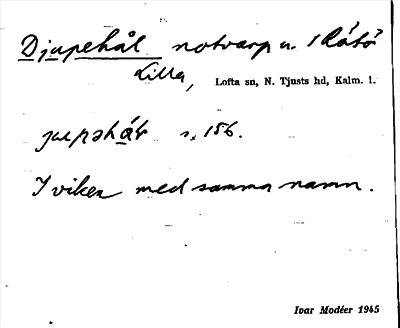 Djupehål notvarp u. Råtö
Lilla, Lofta sn, N. Tjusts hd, Kalm. l.
s. 156.
I viken med samma namn.
Ivar Modéer 1945